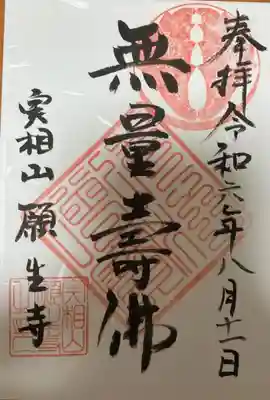 奉拝令和六年八月十一日
無量壽佛
実相山願生寺